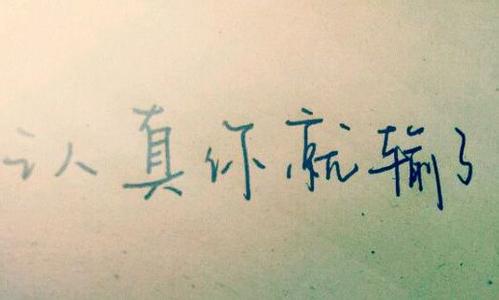 认真你就输了